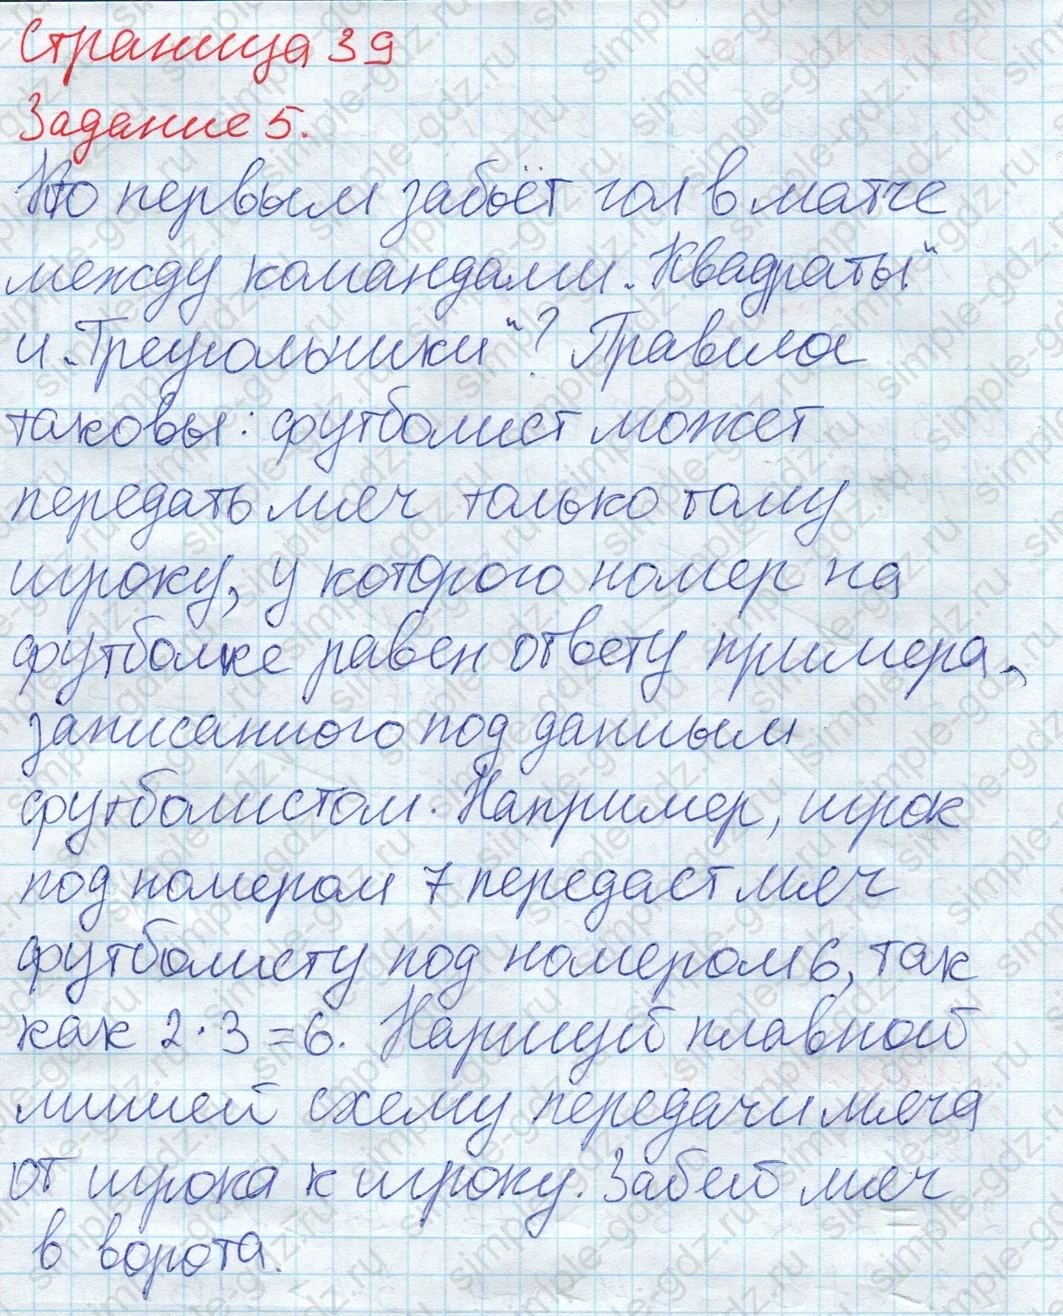 Страница 39
Задание 5.
Кто первым забьёт гол в матче
между командами „Квадраты“
и „Треугольники“? Правила
таковы: футболист может
передать мяч только тому
игроку, у которого номер на
футболке равен ответу примера,
записанного под данным
футболистом. Например, игрок
под номером 7 передаст мяч
футболисту под номером 6, так
как 2·3=6. Нарисуй плавной
линией схему передачи мяча
от игрока к игроку. Забей мяч
в ворота.
simple-gdz.ru